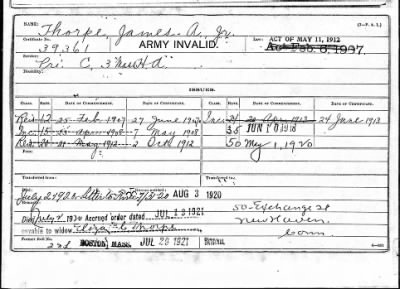 NAME:
Thorpe, James A. Jr.
LAW:
(3—F. A. I.)
ACT OF MAY 11, 1912
Act Feb. 6, 1907.
Certificate No.
39,361
ARMY INVALID.
Service:
Pri C, 3"
Disability:
ISSUES.
CLASS. RATE. DATE OF COMMENCEMENT. DATE OF CERTIFICATE. CLASS. RATE. DATE OF COMMENCEMENT. DATE OF CERTIFICATE.
Reis 12 25 Feb 1907 27 June 1907 Inc 24 1913 24 June 1913
Inc 15 25 Apr 1908 7 May 1908 35 JUN 10 1918
Reis 21 May 1912 2 Oct 1912 50 May 1, 1920
Transferred from
Transferred to
July 24 1920 7/31/20 AUG 3 1920
Died July 2 1920 Accrued order dated JUL 13 1921
payable to widow Eliza C. Thorpe
BOSTON, MASS. JUL 26 1921
50 Exchange St
New Haven,
Conn.